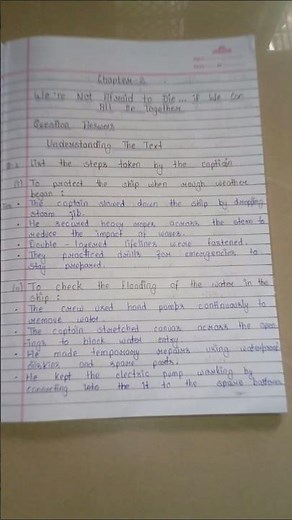 Chapter 2
We're Not Afraid to Die... if We Can
All Be Together
Question Answers
Understanding The Text
List the steps taken by the captain
(i) To protect the ship when rough weather
began :
• The captain slowed down the ship by dropping
storm jib.
• He secured heavy ropes across the stern to
reduce the impact of waves.
• Double-layered lifelines were fastened.
• They practiced drills for emergencies to
stay prepared.
(ii) To check the flooding of the water in the
ship :
• The crew used hand pumps continuously to
remove water.
• The captain stretched canvas across the open
ings to block water entry.
• He made temporary repairs using waterproof
and spare parts.
• He kept the electric pump working by
connecting it to the spare